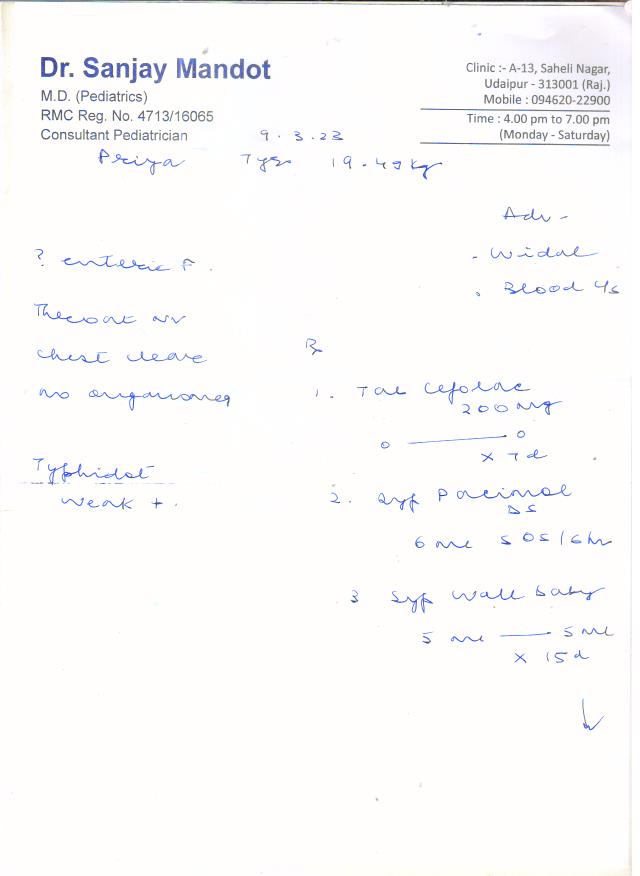 Dr. Sanjay Mandot
M.D. (Pediatrics)
RMC Reg. No. 4713/16065
Consultant Pediatrician
Clinic :- A-13, Saheli Nagar,
Udaipur - 313001 (Raj.)
Mobile : 094620-22900
Time : 4.00 pm to 7.00 pm
(Monday - Saturday)
9.3.23
Priya 7 yr 19.49 kg
Adv -
. Widal
. Blood
? enteric F.
Throat
chest clear
no
Typhidot
weak +.
Rx
1. Tab Cefolac
200 mg
0 — 0
x 7 d
2. Syp Pacimol
DS
6 ml SOS/6hr
3 Syp Wall baby
5 ml — 5 ml
x 15 d